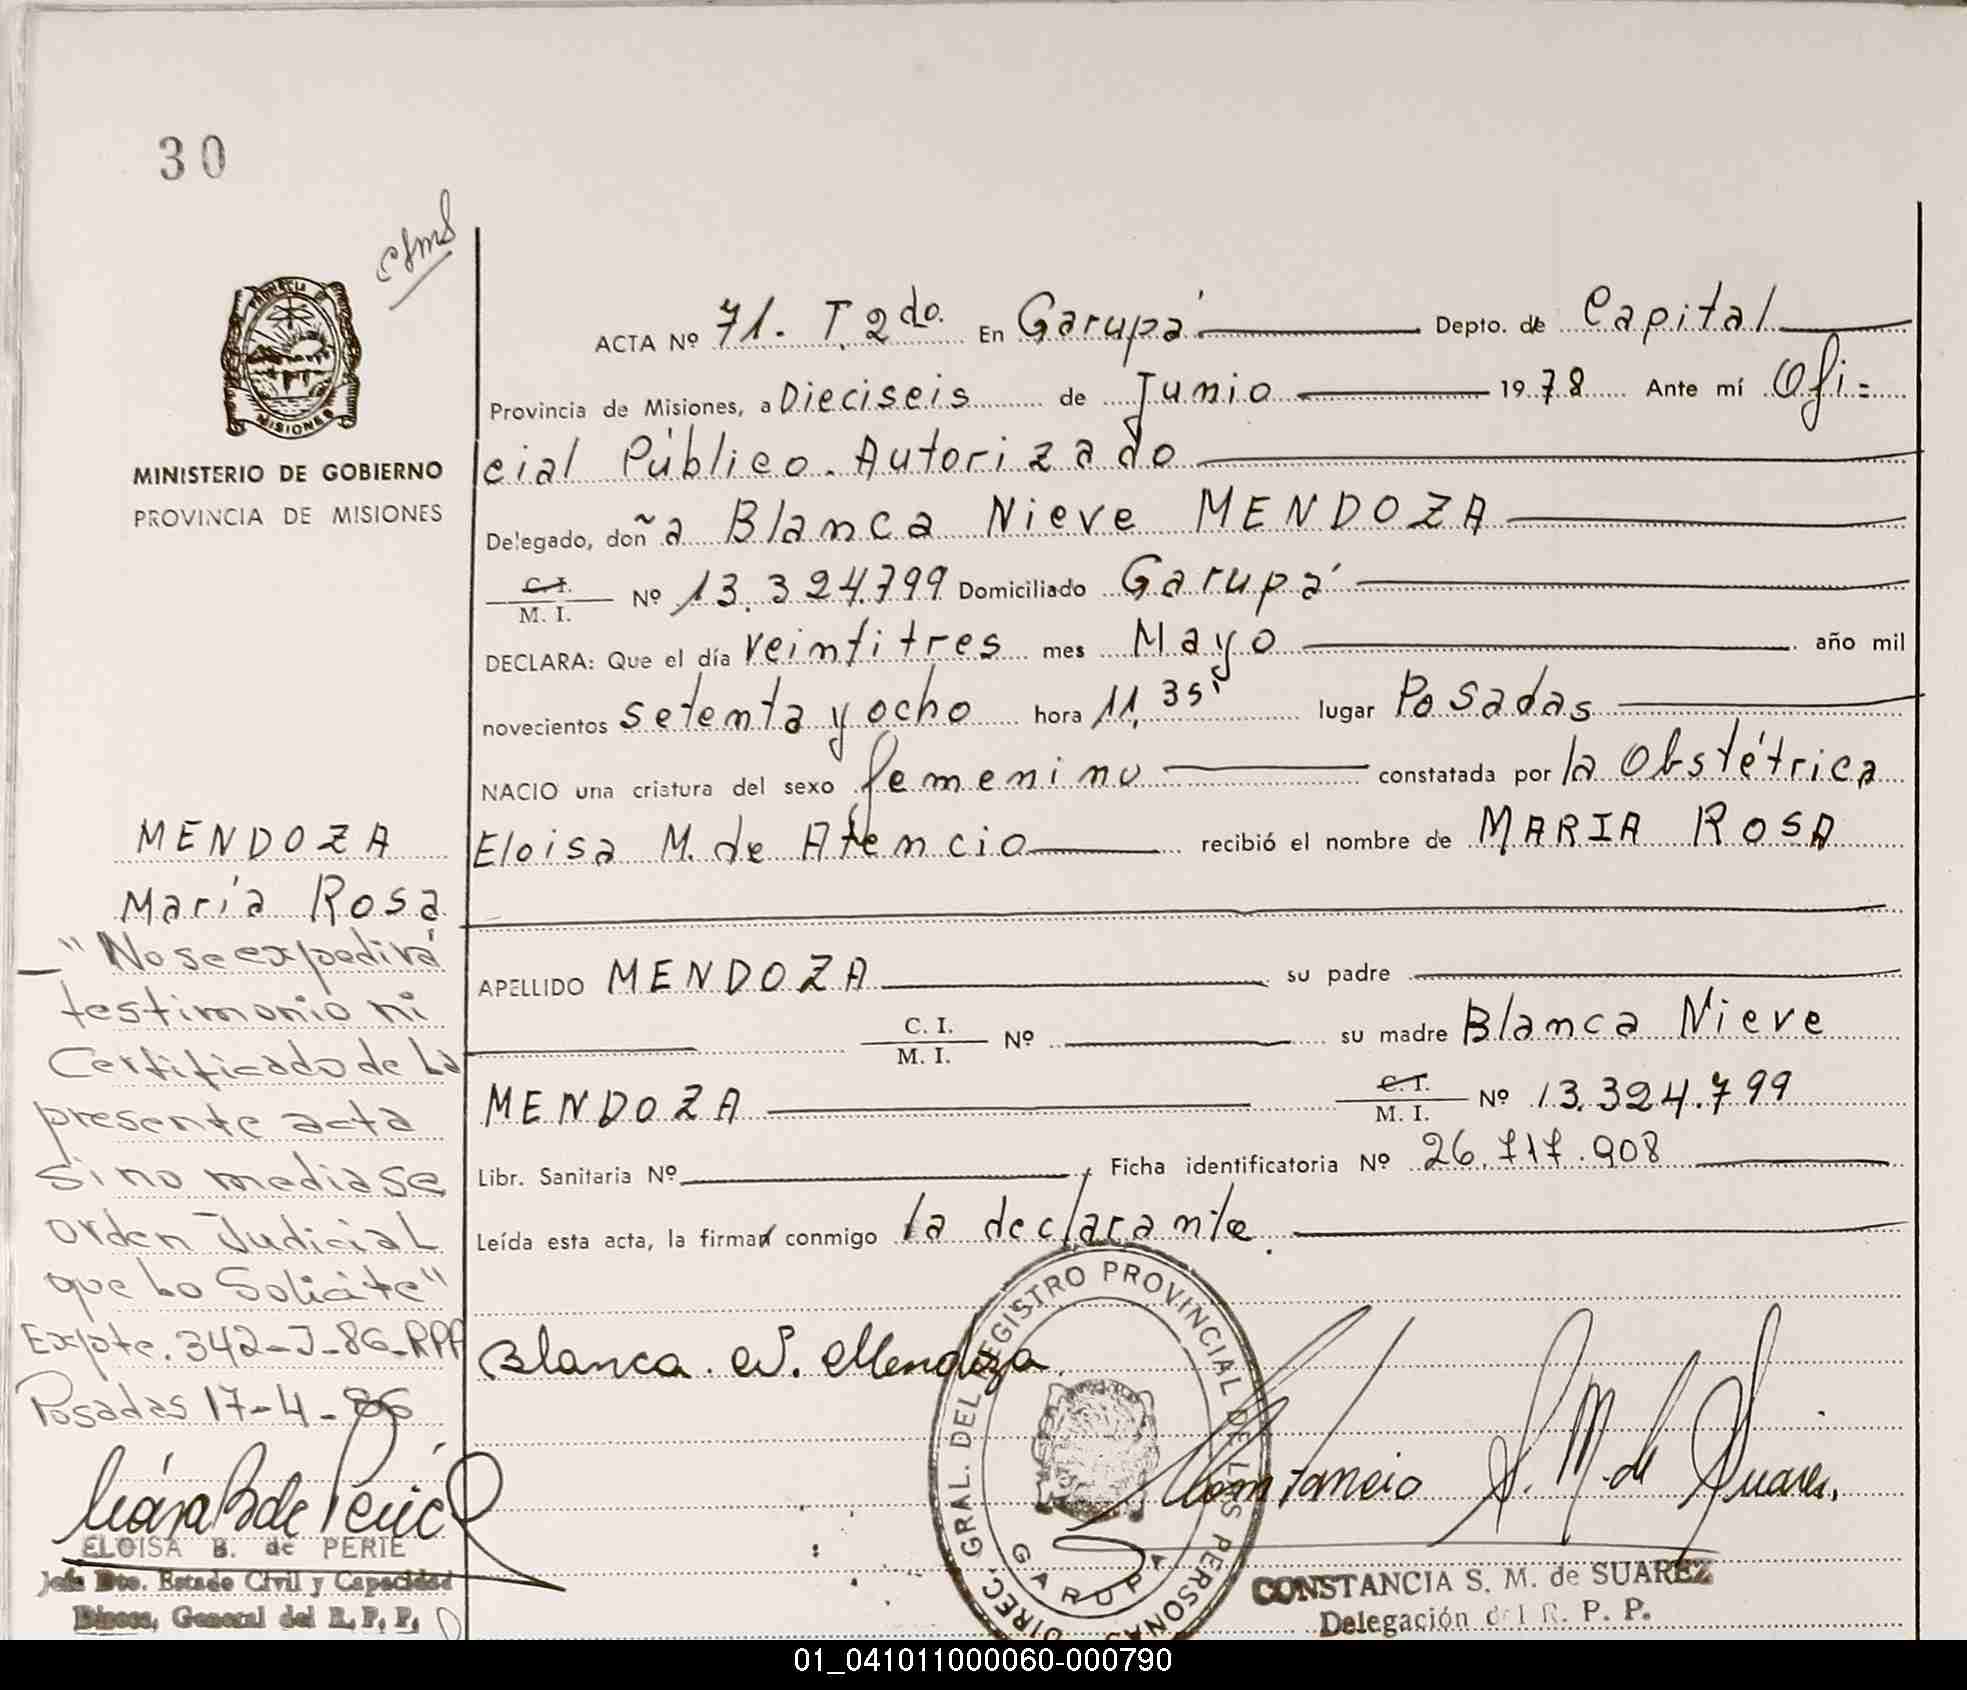 30
cfms
PROVINCIA DE
MISIONES
MINISTERIO DE GOBIERNO
PROVINCIA DE MISIONES
ACTA Nº 71. T. 2do. En Garupá Depto. de Capital
Provincia de Misiones, a Dieciseis de Junio 1978 Ante mí Ofi=
cial Público. Autorizado
Delegado, doña Blanca Nieve MENDOZA
C. I.
M. I. Nº 13.324.799 Domiciliado Garupá
DECLARA: Que el día veintitres mes Mayo año mil
novecientos setenta y ocho hora 11,35' lugar Posadas
NACIO una criatura del sexo femenino constatada por la Obstétrica
Eloisa M. de Atencio recibió el nombre de MARIA ROSA
APELLIDO MENDOZA su padre
C. I.
M. I. Nº su madre Blanca Nieve
MENDOZA C. I.
M. I. Nº 13.324.799
Libr. Sanitaria Nº Ficha identificatoria Nº 26.717.908
Leída esta acta, la firman conmigo la declarante.
MENDOZA
María Rosa
"No se expedirá
testimonio ni
Certificado de La
presente acta
si no media se
orden Judicial
que Lo Solicite"
Expte. 342-J-86-RPP
Posadas 17-4-86
ELOISA B. de PERIE
Jefa Dto. Estado Civil y Capacidad
Direcc. General del R. P. P.
Blanca. N. Mendoza.
DIREC. GRAL. DEL REGISTRO PROVINCIAL DE LAS PERSONAS
GARUPA
Constancia S. M. de Suarez.
CONSTANCIA S. M. de SUAREZ
Delegación del R. P. P.
01_041011000060-000790